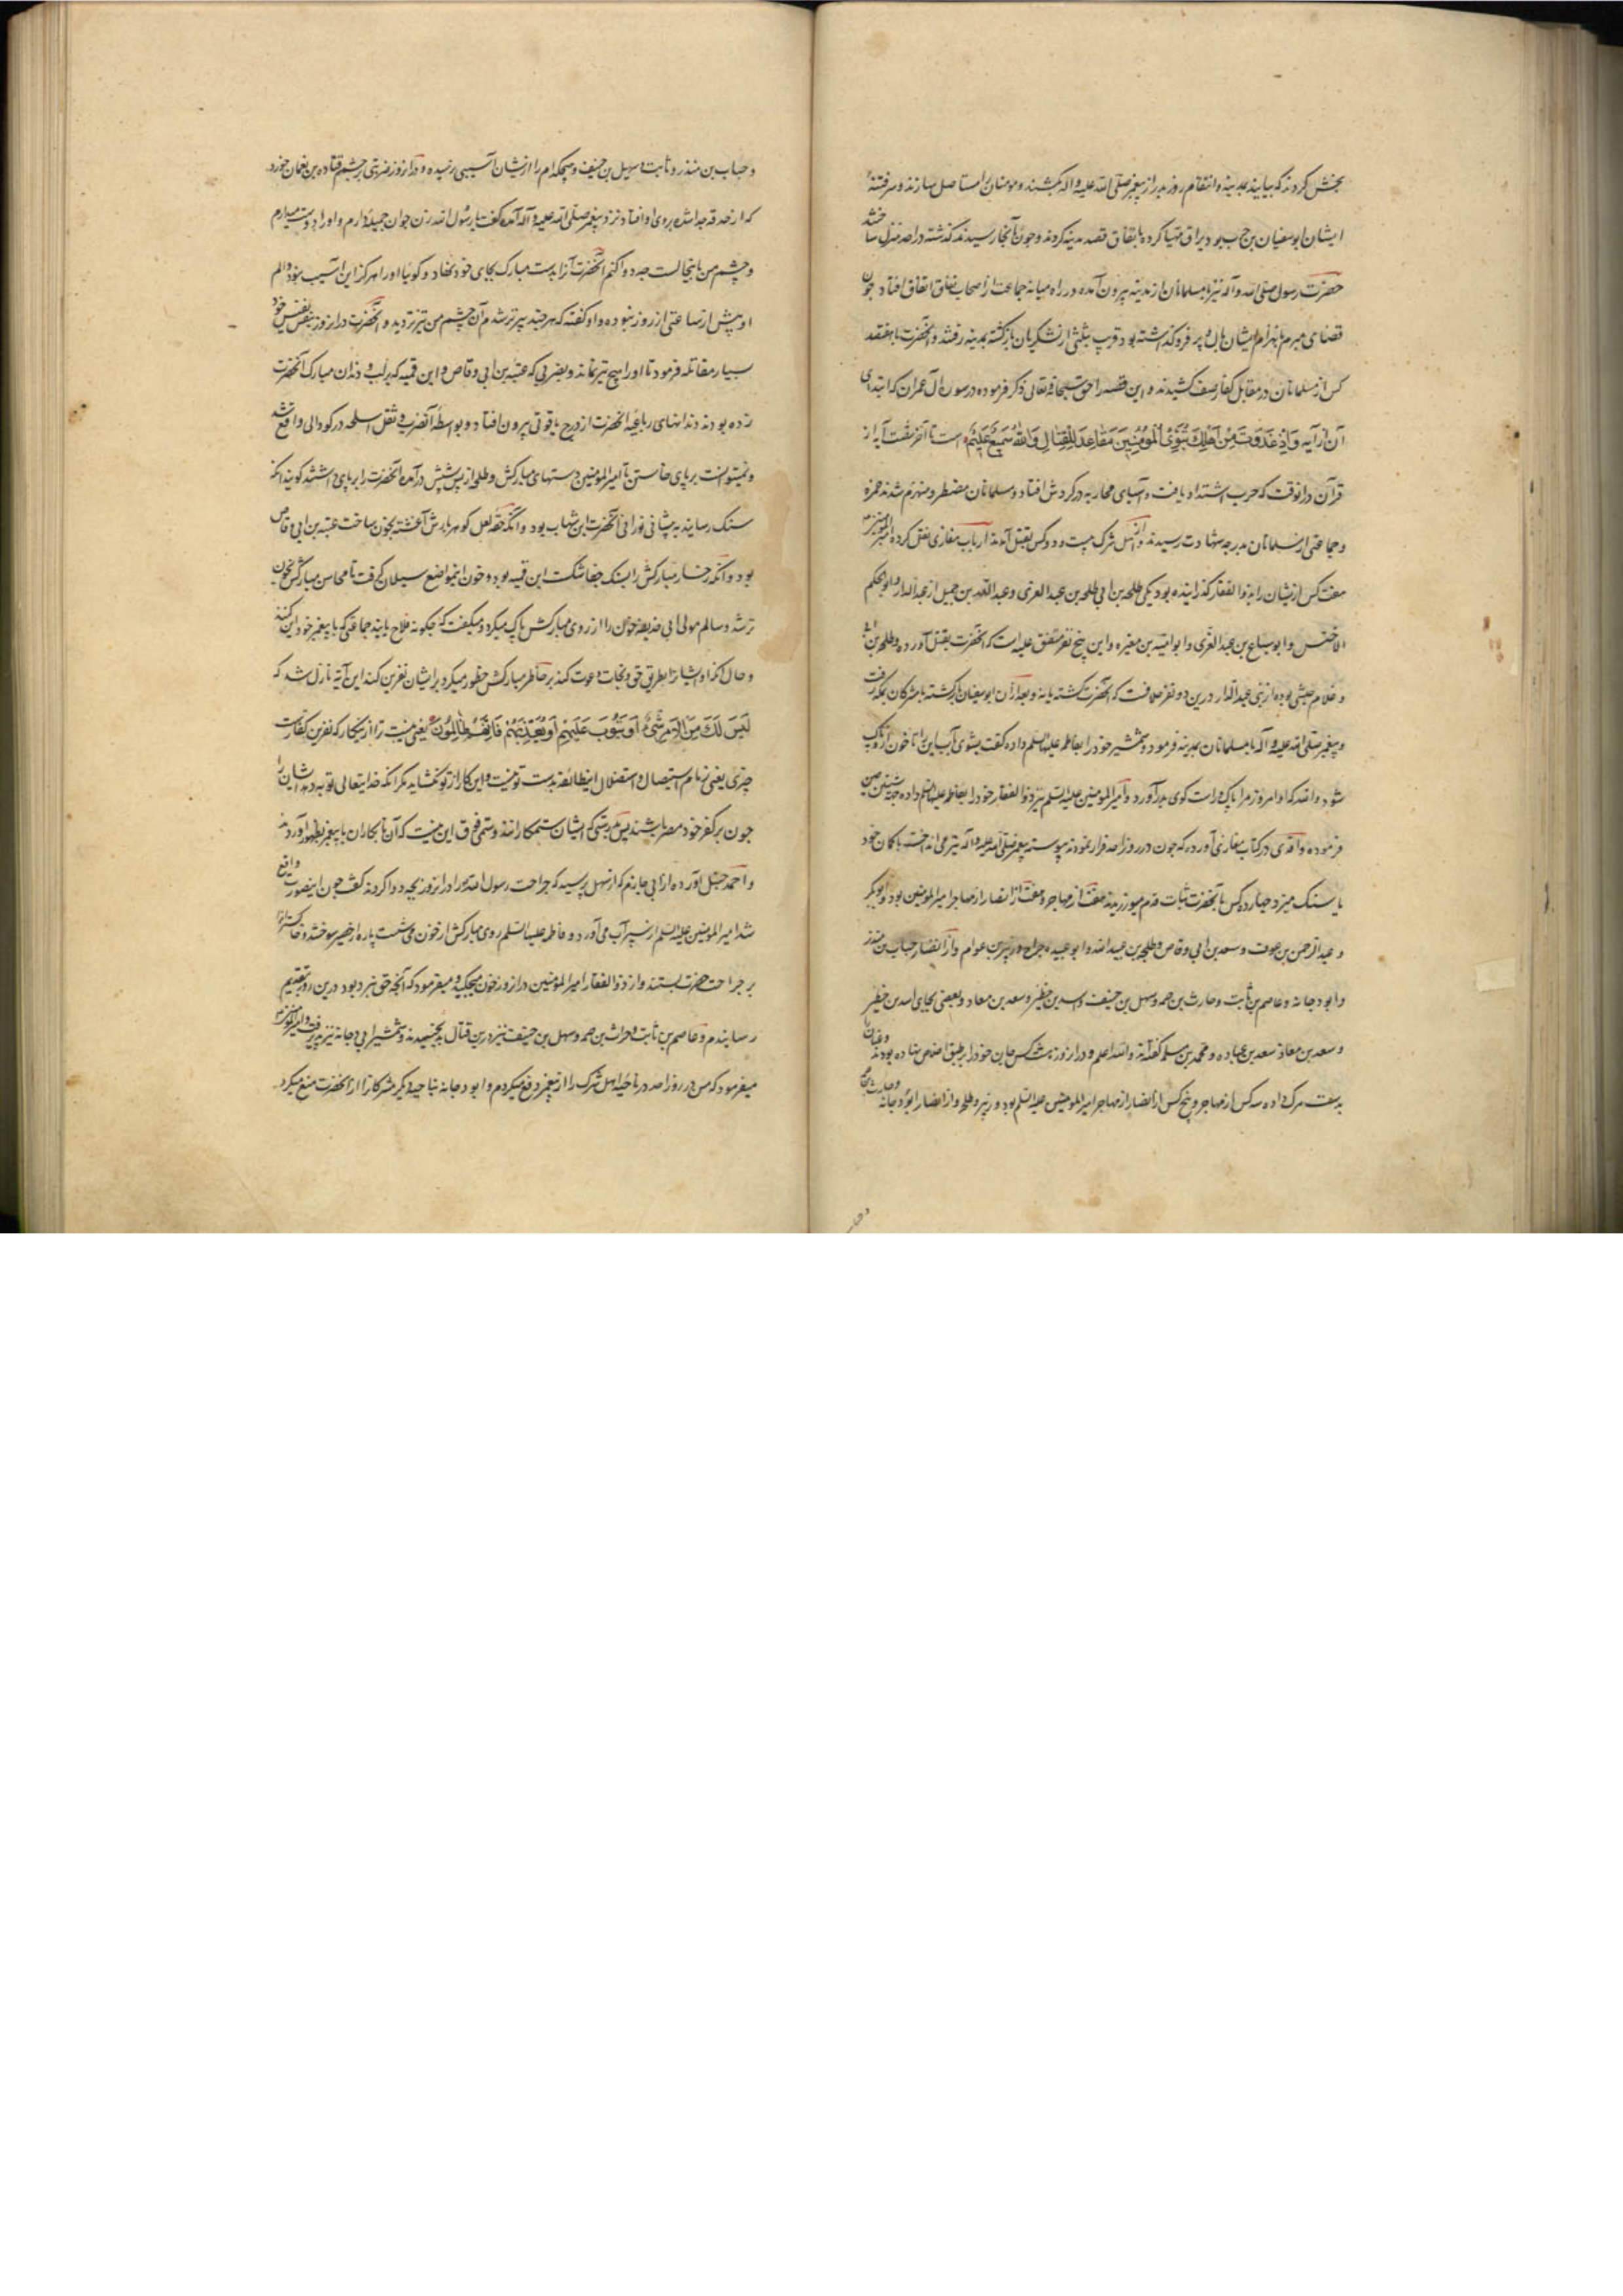 بخش کردند که بیایند بمدینه و انتقام روز بدر از پیغمبر صلی الله علیه و اله بکشند و مومنان را مستاصل سازند و سرفتنهٔ
ایشان ابوسفیان بن حرب بود یراق مهیا کرده باتفاق قصد مدینه کردند و چون آنجا رسیدند گذشته در احد منزل ساختند
حضرت رسول صلی الله و آله نیز با مسلمانان از مدینه بیرون آمده در راه میانه جماعت از اصحاب نفاق اتفاق افتاد چون
قضای مبرم بانهزام ایشان بال و پر فرو گذاشته بود قریب بثلثی از لشکریان بازگشته بمدینه رفتند و آنحضرت با هفتصد
کس از مسلمانان در مقابل کفار صف کشیدند و این قصه را حق سبحانه و تعالی ذکر فرموده در سوره آل عمران که ابتدای
آن از آیه وَاِذْ غَدَوْتَ مِنْ اَهْلِكَ تُبَوِّئُ الْمُؤْمِنِينَ مَقَاعِدَ لِلْقِتَالِ وَاللهُ سَمِيعٌ عَلِيمٌ است تا آخر شصت آیه از
قرآن در انوقت که حرب اشتداد یافت و آسیای محاربه در گردش افتاد و مسلمانان مضطر و منهزم شدند حمزه
و جماعتی از مسلمانان بدرجه شهادت رسیدند و از اهل شرک بیست و دو کس بقتل آمدند ارباب مغازی نقل کرده امیرالمومنین
هفت کس ازیشان را بذوالفقار گذرانیده بود یکی طلحه بن ابی طلحه بن عبد العزی و عبد الله بن جمیل از عبد الدار و ابو الحکم
الاخنس و ابو سباع بن عبد العزی و ابو امیه بن مغیره و این پنج نفر متفق علیه است که آنحضرت بقتل آورده و طلحه بن
و غلام حبشی بوده از بنی عبد الدار درین دو نفر خلافست که آنحضرت کشته یا نه و بعد از آن ابوسفیان برگشته با مشرکان بمکه رفت
و پیغمبر صلی الله علیه و آله با مسلمانان بمدینه فرمود و شمشیر خود را بفاطمه علیها السلم داده گفت بشوی بآب این را تا خون ازو پاک
شود والله که او امروز مرا پاک و راست گوی برآورد و امیر المومنین علیه السلم نیز ذوالفقار خود را بفاطمه علیها السلم داده
فرموده واقدی در کتاب مغازی آورده که چون در روز احد فرار نمودند پیوسته پیغمبر صلی الله علیه و آله تیر می انداخت با کمان خود
یا سنگ میزد چهارده کس با آنحضرت ثبات قدم میورزیدند هفت از مهاجر و هفت از انصار از مهاجر امیر المومنین بود و ابوبکر
و عبد الرحمن بن عوف و سعد بن ابی وقاص و طلحه بن عبید الله و ابو عبیده جراح و زبیر بن عوام و از انصار حباب بن منذر
و ابو دجانه و عاصم بن ثابت و حارث بن صمه و سهل بن حنیف و اسید بن حضیر و سعد بن معاذ و بعضی بجای اسید بن حضیر
و سعد بن معاذ سعد بن عباده و محمد بن مسلمه گفته‌اند والله اعلم و در انروز هشت کس جان خود را بر طبق اخلاص نهاده بودند
به بیعت مرگ داده سه کس از مهاجر و پنج کس از انصار از مهاجر امیر المومنین علیه السلم بود و زبیر و طلحه و از انصار ابو دجانه و حارث بن صمه
و حباب
و حباب بن منذر و ثابت و سهل بن حنیف و هیچکدام را ازیشان آسیبی نرسیده و در انروز ضربتی بر چشم قتاده بن نعمان خورد
که از حدقه جدا شده بروی او افتاد نزد پیغمبر صلی الله علیه و آله آمده گفت یا رسول الله زن جوان جمیله دارم و او را دوست میدارم
و چشم من باینحالست چه دوا کنم آنحضرت آنرا بدست مبارک بجای خود نهاد و گویا او را هرگز این آسیب نبود و الم
او پیش از ساعتی از روز نبوده و او گفته که هر چند پیرتر شدم آن چشم من تیزتر دید و آنحضرت در انروز بنفس نفیس خود
بسیار مقاتله فرمود تا او را هیچ تیر نماند و بضربی که عتبه بن ابی وقاص و ابن قمیه که بر لب و دندان مبارک آنحضرت
زده بودند دندانهای رباعیه آنحضرت از درج یاقوتی بیرون افتاد و بواسطه آنضرب و ثقل اسلحه در گودالی واقع شد
و نمیتوانست برپای خاستن تا امیر المومنین دستهای مبارکش و طلحه از پس پشتش درآمده آنحضرت را برپای داشتند گویند آنکه
سنگ رسانید به پیشانی نورانی آنحضرت ابن شهاب بود و آنکه حقه لعل گوهربارش آغشته بخون ساخت عتبه بن ابی وقاص
بود و آنکه رخسار مبارکش را بسنگ جفا شکست ابن قمیه بوده خون ازینمواضع سیلان گرفت تا محاسن مبارکش بخون
تر شد و سالم مولی ابی حذیفه خون را از روی مبارکش پاک میکرد و میگفت که چگونه فلاح یابند جماعتی که با پیغمبر خود این کنند
و حال آنکه او ایشانرا بطریق حق و نجات دعوت کند بر خاطر مبارکش خطور میکرد بر ایشان نفرین کند این آیه نازل شد که
لَيْسَ لَكَ مِنَ الْاَمْرِ شَيْءٌ اَوْ يَتُوبَ عَلَيْهِمْ اَوْ يُعَذِّبَهُمْ فَاِنَّهُمْ ظَالِمُونَ یعنی نیست ترا ازینکار که نفرین کفارست
چیزی یعنی زمام استیصال و استقلال اینطائفه بدست تو نیست و این کار از تو نگشاید مگر آنکه خدایتعالی توبه دهد ایشان را
چون بر کفر خود مصر باشند پس بدرستی که ایشان ستمکارانند و ستمی فوق این نیست که آن نابکاران با پیغمبر بظهور آوردند
و احمد حنبل آورده از ابی حازم که از سهل پرسید که جراحت رسول الله را در انروز بچه دوا کردند گفت چون اینصورت واقع
شد امیر المومنین علیه السلم از سپر آب می آورد و فاطمه علیها السلم روی مبارکش از خون می شست پاره از حصیر سوختند و خاکستر آنرا
بر جراحت حضرت بستند و از ذوالفقار امیر المومنین در انروز خون میچکید و میفرمود که آنچه حق نبرد بود درین روز بتقدیم
رسانیدم و عاصم بن ثابت و حراث بن صمه و سهل بن حنیف نیز درین قتال بد نجنبیدند و شمشیر ابی دجانه نیز و امیرالمومنین
میفرمود که من در روز احد در ناحیه اهل شرک را از پیغمبر دفع میکردم و ابو دجانه بناحیه دیگر مشرکانرا از آنحضرت منع میکرد